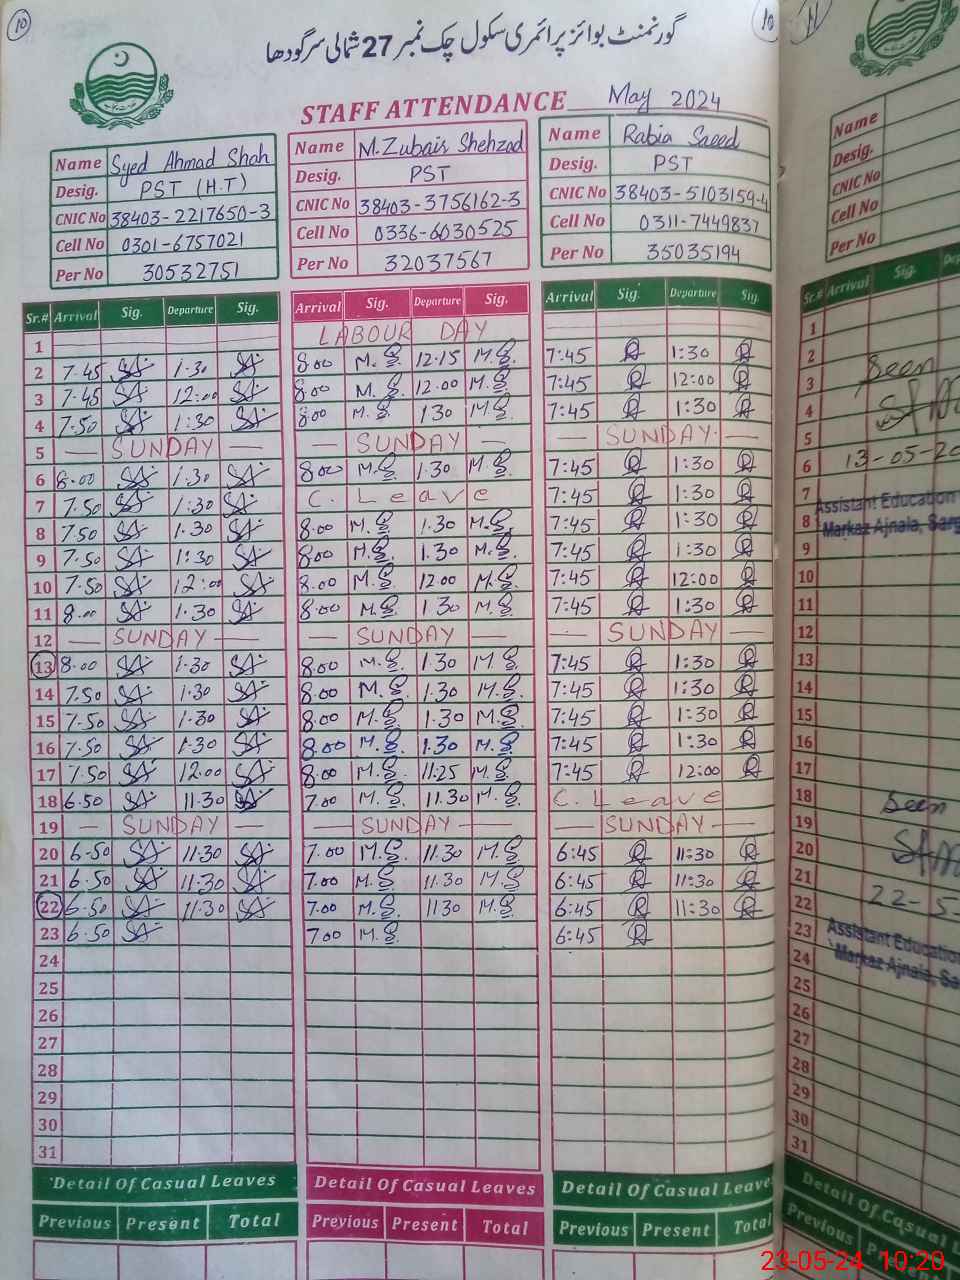 10
گورنمنٹ بوائز پرائمری سکول چک نمبر 27 شمالی سرگودھا
10
11
STAFF ATTENDANCE May 2024
Name Syed Ahmad Shah
Desig. PST (H.T)
CNIC No 38403-2217650-3
Cell No 0301-6757021
Per No 30532751
Name M.Zubair Shehzad
Desig. PST
CNIC No 38403-3756162-3
Cell No 0336-6030525
Per No 32037567
Name Rabia Saeed
Desig. PST
CNIC No 38403-5103159-4
Cell No 0311-7449837
Per No 35035194
Name
Desig.
CNIC No
Cell No
Per No
Sr.# Arrival Sig. Departure Sig. Arrival Sig. Departure Sig. Arrival Sig. Departure Sig.
1 LABOUR DAY
2 7.45 SA 1.30 SA 8.00 M.S 12.15 M.S 7:45 R 1:30 R
3 7.45 SA 12:00 SA 8.00 M.S 12.00 M.S 7:45 R 12:00 R
4 7.50 SA 1:30 SA 8.00 M.S 1.30 M.S 7:45 R 1:30 R
5 — SUNDAY — — SUNDAY — — SUNDAY —
6 8.00 SA 1.30 SA 8.00 M.S 1.30 M.S 7:45 R 1:30 R
7 7.50 SA 1:30 SA C. Leave 7:45 R 1:30 R
8 7.50 SA 1.30 SA 8.00 M.S 1.30 M.S 7:45 R 1:30 R
9 7.50 SA 1:30 SA 8.00 M.S 1.30 M.S 7:45 R 1:30 R
10 7.50 SA 12:00 SA 8.00 M.S 12.00 M.S 7:45 R 12:00 R
11 8.00 SA 1.30 SA 8.00 M.S 1.30 M.S 7:45 R 1:30 R
12 — SUNDAY — — SUNDAY — — SUNDAY —
13 8.00 SA 1.30 SA 8.00 M.S 1.30 M.S 7:45 R 1:30 R
14 7.50 SA 1.30 SA 8.00 M.S 1.30 M.S 7:45 R 1:30 R
15 7.50 SA 1.30 SA 8.00 M.S 1.30 M.S 7:45 R 1:30 R
16 7.50 SA 1.30 SA 8.00 M.S 1.30 M.S 7:45 R 1:30 R
17 7.50 SA 12.00 SA 8.00 M.S 11.25 M.S 7:45 R 12:00 R
18 6.50 SA 11.30 SA 7.00 M.S 11.30 M.S C. Leave
19 — SUNDAY — — SUNDAY — — SUNDAY —
20 6.50 SA 11.30 SA 7.00 M.S 11.30 M.S 6:45 R 11:30 R
21 6.50 SA 11:30 SA 7.00 M.S 11.30 M.S 6:45 R 11:30 R
22 6.50 SA 11.30 SA 7.00 M.S 11.30 M.S 6:45 R 11:30 R
23 6.50 SA 7.00 M.S 6:45 R
24
25
26
27
28
29
30
31
Detail Of Casual Leaves
Previous Present Total
Detail Of Casual Leaves
Previous Present Total
Detail Of Casual Leaves
Previous Present Total
Sr.# Arrival Sig.
1
2
3 Seen
4
5
6 13-05-20
7
8 Assistant Education
Markaz Ajnala, Sarg
9
10
11
12
13
14
15
16
17
18 Seen
19
20
21
22 22-5-
23 Assistant Education
24 Markaz Ajnala, Sa
25
26
27
28
29
30
31
Detail Of Casual L
Previous
23-05-24 10:20